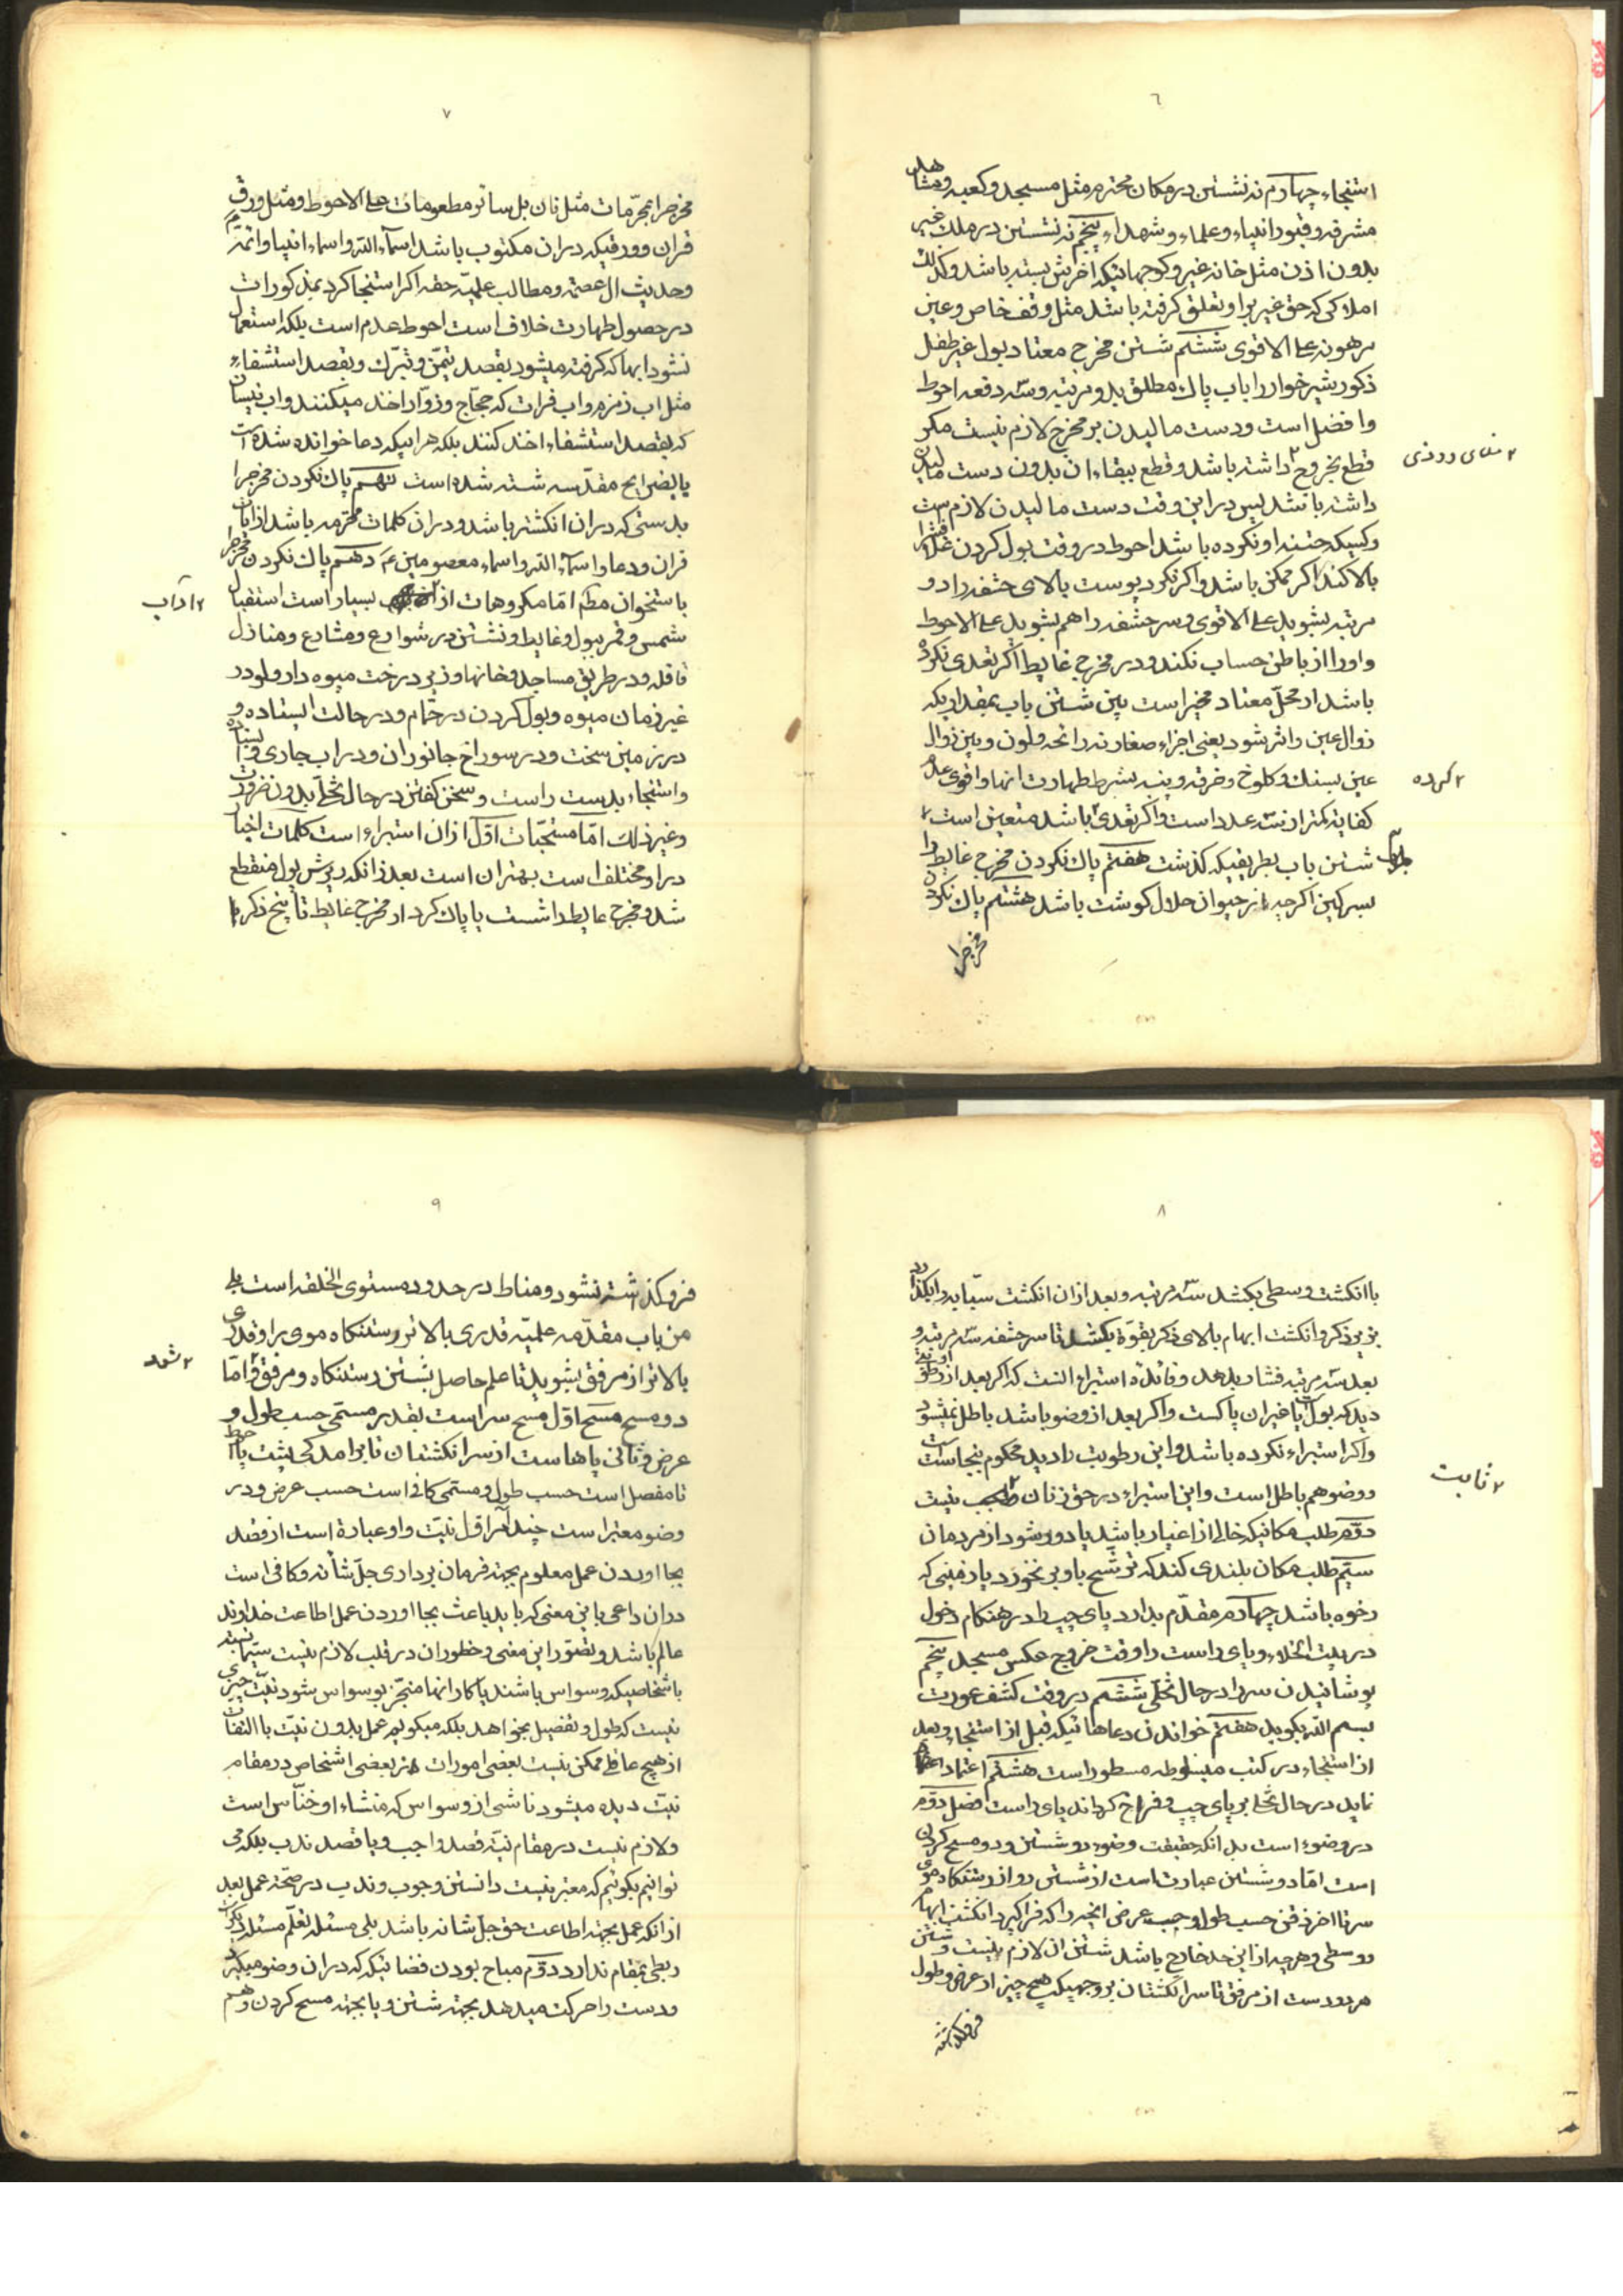 ٦
استنجاء چهارم نه نشستن در مکان محترم مثل مسجد و کعبه و مشاهد
مشرفه و قبور انبیاء و علماء و شهداء پنجم نه نشستن در ملک غیر
بدون اذن مثل خانه غیر و کوچهائیکه اخرش بسته باشد و کذلک
املاکی که حق غیر براو تعلق گرفته باشد مثل وقف خاص و عین
مرهونه علی الاقوی ششم شستن مخرج معتاد بول غیر طفل
ذکور شیر خوار را باب پاک مطلق بدو مرتبه و سه دفعه احوط
و افضل است و دست مالیدن بر مخرج لازم نیست مگر
قطع بخروج ۲ داشته باشد و قطع ببقاء ان بدون دست مالیدن
داشته باشد پس در این وقت دست مالیدن لازم است
و کسیکه ختنه او نکرده باشد احوط در وقت بول کردن غلاف را
بالا کند اگر ممکن باشد و اگر نکرد پوست بالای حشفه را دو
مرتبه بشوید علی الاقوی و سر حشفه را هم بشوید علی الاحوط
و او را از باطن حساب نکند و در مخرج غایط اگر تعدی نکرده
باشد از محل معتاد مخیر است بین شستن باب بمقداریکه
زوال عین و اثر بشود یعنی اجزاء صغار نه رائحه و لون و بین زوال
عین بسنک و کلوخ و خرقه و پنبه بشرط طهارت انها و اقوی عدم
۲ کرده
کفایة کمتر از سه عدد است و اگر تعدی ۲ باشد متعین است
شستن باب بطریقیکه گذشت هفتم پاک نکردن مخرج غایط را
بسرکین اگرچه از حیوان حلال گوشت باشد هشتم پاک نکردن
مخرجرا
٧
مخرجرا بمحرمات مثل نان بل سائر مطعومات علی الاحوط و مثل ورق
قران و ورقیکه در ان مکتوب باشد اسماء الله و اسماء انبیا و ائمه
و حدیث ال عصمة و مطالب علمیه حقه اگر استنجا کرد بمذکورات
در حصول طهارت خلاف است احوط عدم است بلکه استعمال
نشود ابهاکه گرفته میشود بقصد تیمن و تبرک و بقصد استشفاء
مثل اب زمزم و اب فرات که حجاج و زوار اخذ میکنند و اب نیسان
که بقصد استشفاء اخذ کنند بلکه هر ابیکه دعا خوانده شده است
یا بضرایح مقدسه شسته شده است نهم پاک نکردن مخرجرا
بدستی که در ان انگشتر باشد و در ان کلمات محترمه باشد از ایات
قران و دعا و اسماء الله و اسماء معصومین ع دهم پاک نکردن مخرجرا
باستخوان مطم اما مکروهات از ۲ بسیار است استقبال
۲ آداب
شمس و قمر ببول و غایط و نشستن در شوارع و مشارع و منازل
قافله و در طریق مساجد و خانها و زیر درخت میوه دار ولو در
غیر زمان میوه و بول کردن در حمام و در حالت ایستاده و
در زمین سخت و در سوراخ جانوران و در اب جاری و ایستاده
و استنجاء بدست راست و سخن گفتن در حال تخلی بدون ضرورت
و غیر ذلک اما مستحبات اول از ان استبراء است کلمات اخیار
در او مختلف است بهتر ان است بعد از انکه ریزش بول منقطع
شد و مخرج غایط را شست یا پاک کرد از مخرج غایط تا بیخ ذکر را
٨
با انگشت وسطی بکشد سه مرتبه و بعد از ان انگشت سبابه را بگذارد
بزیر ذکر و انگشت ابهام بالای ذکر بقوة بکشد تا سر حشفه سه مرتبه و
بعد سه مرتبه فشار بدهد و فائده استبراء انست که اگر بعد از او رطوبتی
دید که بول یا غیر ان پاکست و اگر بعد از وضو باشد باطل نمیشود
و اگر استبراء نکرده باشد و این رطوبت را دید محکوم بنجاست است
و وضو هم باطل است و این استبراء در حق زنان ۲ نیست
۲ ثابت
دوم طلب مکانیکه خالی از اغیار باشد یا دور شود از مردمان
سیم طلب مکان بلندی کند که ترشح باو بر نخورد یا زمینی که
رخوه باشد چهارم مقدم بدارد پای چپ را در هنکام دخول
در بیت الخلاء و پای راست را وقت خروج عکس مسجد پنجم
پوشانیدن سر را در حال تخلی ششم در وقت کشف عورت
بسم الله بگوید هفتم خواندن دعاهائیکه قبل از استنجاء و بعد
از استنجاء در کتب مبسوطه مسطور است هشتم اعتماد
نماید در حال تخلی بر پای چپ و فراخ گرداند پای راست فصل دوم
در وضوء است بدانکه حقیقت وضوء دو شستن و دو مسح کردن
است اما دو شستن عبارتست از شستن رو از رستنگاه موی
سر تا اخر ذقن حسب طول و حسب عرض انچه را که فرا گیرد انگشت ابهام
و وسطی و هرچه از این حد خارج باشد شستن ان لازم نیست و شستن
هر دو دست از مرفق تا سر انگشتان بر وجهیکه هیچ چیز از عرض و طول
فروگذاشته
٩
فروگذاشته نشود و مناط در حدود مستوی الخلقه است بلی
من باب مقدمه علمیه قدری بالاتر رستنگاه موی برا و قدری
بالاتر از مرفق بشوید تا علم حاصل بشستن رستنگاه و مرفق ۲ و اما
۲ شود
دو مسح مسح اول مسح سر است بقدر مسمی حسب طول و
عرض و ثانی پاها است از سر انگشتان تا برامدگی پشت پا احوط
تا مفصل است حسب طول و مسمی کافی است حسب عرض و در
وضو معتبر است چند امر اول نیت و او عبارة است از قصد
بجا اوردن عمل معلوم بجهة فرمان برداری جل شانه و کافی است
در ان داعی باین معنی که باید باعث بجا اوردن عمل اطاعت خداوند
عالم باشد و تصور این معنی و خطور ان در قلب لازم نیست سیما نسبت
باشخاصیکه وسواس باشند یا کار انها منجر بوسواس شود نیت چیزی
نیست که طول و تفصیل بخواهد بلکه میگوئیم عمل بدون نیت با التفات
از هیچ عاقل ممکن نیست بعضی امورات در بعضی اشخاص در مقام
نیت دیده میشود ناشی از وسواس که منشاء او خناس است
و لازم نیست در مقام نیة قصد واجب و یا قصد ندب بلکه می
توانیم بگوئیم که معتبر نیست دانستن وجوب و ندب در صحة عمل بعد
از انکه عمل بجهة اطاعت حق جل شانه باشد بلی مسئله تعلم مسئله دیگر است
ربطی بمقام ندارد دوم مباح بودن فضائیکه که در ان وضو میگیرد
و دست را حرکت میدهد بجهة شستن و یا بجهة مسح کردن و هم